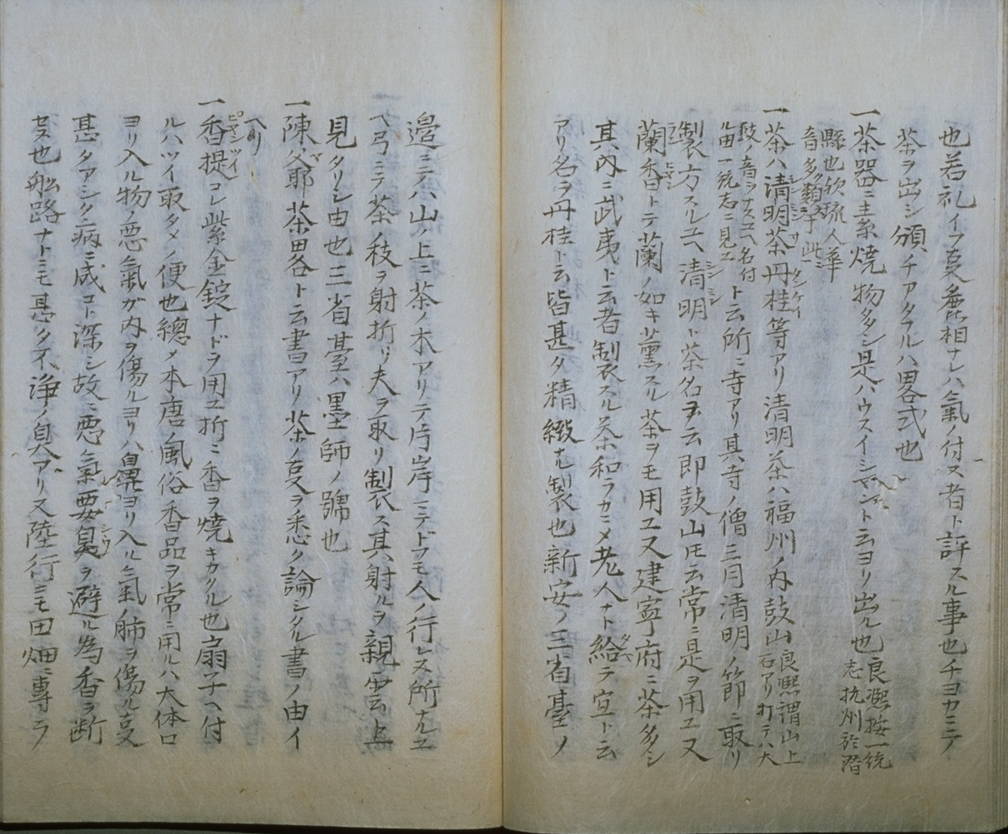 也若礼イフ叓麁相ナレハ氣ノ付ヌ者ト評スル事也チヨカミニテ
茶ヲ出シ頒チアタフルハ畧式也
一茶器ニ素焼物多シ是ハウスイシヤントト云ヨリ出ル也良熈按一統
志杭州於潜
縣也欤琉人華
音多類予此ニ
一茶ハ清明茶丹桂等アリ清明茶ハ福州ノ内鼓山良熈謂山上
石アリ打テハ大
段ノ音ヲナスユヘ名付
ル由一統志ニ見エト云所ニ寺アリ其寺ノ僧三月清明ノ節ニ取リ
製方スルユヘ清明ト茶名ヲ云即鼓山氏云常ニ是ヲ用ユ又
蘭香トテ蘭ノ如キ薫スル茶ヲモ用ユ又建寧府ニ茶多シ
其内ニ武夷ト云者製スル茶和ラカニメ老人ナトヘ給テ宜ト云
アリ名ヲ丹桂ト云皆甚タ精緻ナル製也新安ノ三省臺ノ
邉ニテハ山ノ上ニ茶ノ木アリテ片岸ニテトフモ人ノ行レヌ所ナルユ
ヘ弓ニテ茶ノ枝ヲ射折リ夫ヲ取リ製ス其射ルヲ親雲上
見タリシ由也三省臺ハ墨師ノ號也
一陳爺爺茶畧ト云書アリ茶ノ叓ヲ悉ク論シタル書ノ由イ
ヘリ
一香提コレ紫金錠ナドヲ用ユ折ニ香ヲ焼キカクル也扇子ヘ付
ルハツイ取タメノ便也總メ本唐風俗香品ヲ常ニ用ルハ大体口
ヨリ入ル物ノ悪氣ガ内ヲ傷ルヨリハ鼻ヨリ入ル氣ノ肺ヲ傷ル叓
甚タアシク病ニ成コト深シ故ニ悪氣要臭ヲ避ル為香ヲ断
セス也船路ナトニモ甚タ不浄ノ臭アリ又陸行ニモ田畑ニ專ラ